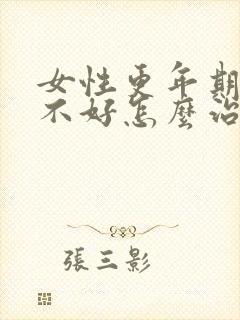 女性更年期
不好怎麼治
張三影